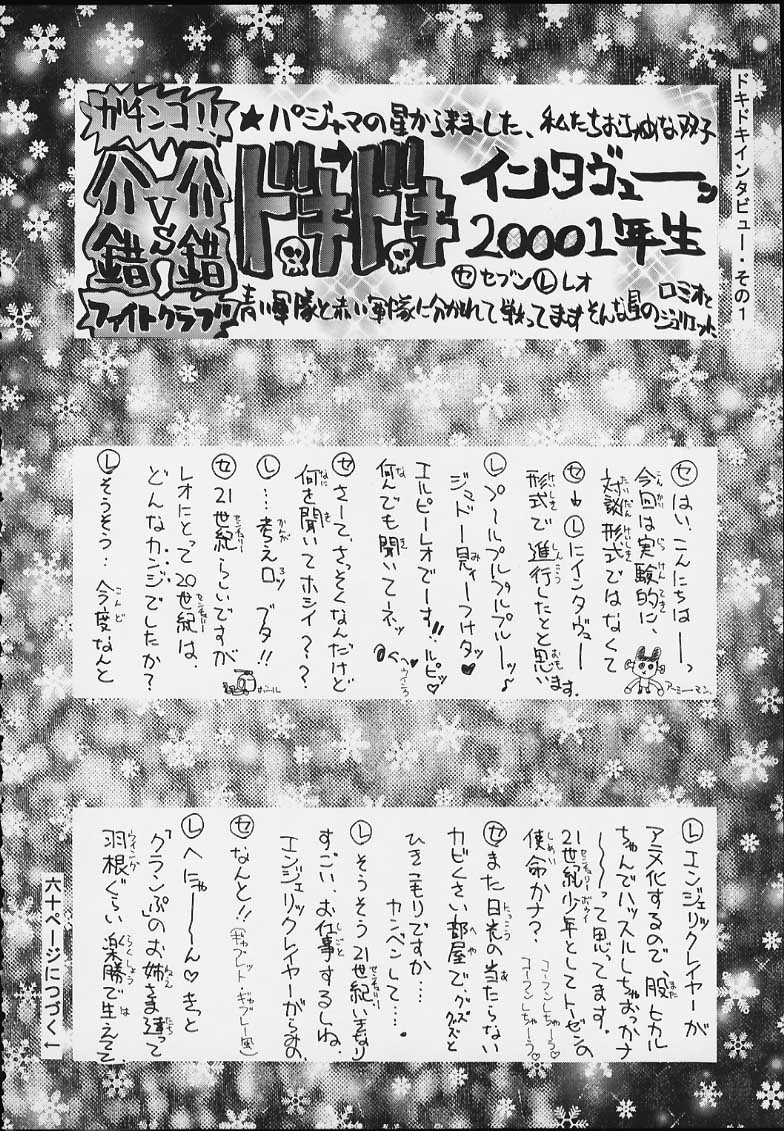 ドキドキインタビュー・その1
ガチンコ!!
介錯
VS
介錯
ファイトクラブ
★パジャマの星から来ました、私たちおちゃめな双子
ドキドキ
インタヴューーッ
20001年生
セ セブン レ レオ
青い軍隊と赤い軍隊に分かれて戦ってますそんな星の
ロミオと
ジュリエット
セ はい、こんにちはーーっ
今回は実験的に、
対談形式ではなくて
セ→レにインタヴュー
形式で進行したとと思います。
アーミーマン。
レ プ〜ルプルプルプルーーッ♪
ジュドー見ィーつけタッ♥
エルピーレオでーす!!ルピッ♡
何んでも聞いてーネッ
セ さーて、さっそくなんだけど
何を聞いてホシイ??
レ …考えロッ ブタ!!
セ 21世紀らしいですが
レオにとって20世紀は、
どんなカンジでしたか?
ボール
レ そうそう…今度なんと
レ エンジェリックレイヤーが
アニメ化するので、股ヒカル
ちゃんでハッスルしちゃおっかナ
〜〜って思ってます。
21世紀少年としてトーゼンの
使命かナ? コーフンしちゃーう♡
コーフンしちゃーう♡
セ また日光の当たらない
カビくさい部屋で、グズグズと
ひきこもりですか…
カンベンして…。
レ そうそう21世紀いきなり
すごい、お仕事するしね、
エンジェリックレイヤーがらみの、
セ なんと!!(ギャブレット・ギャブレー風)
レ へにゃ〜〜ん♡きっと
「クランプ」のお姉さま達って
羽根ぐらい楽勝で生えてて、
六十ページにつづく←